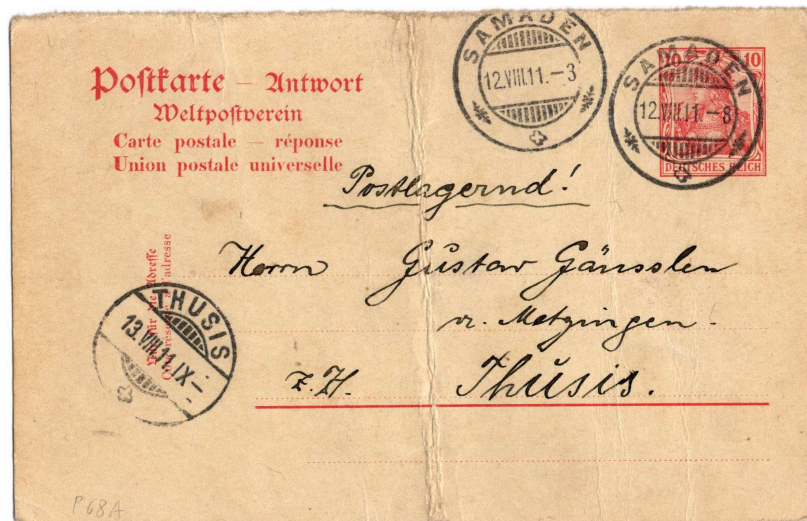 Postkarte – Antwort
Weltpostverein
Carte postale — réponse
Union postale universelle
SAMADEN
12.VIII.11.–3
SAMADEN
12.VIII.11.–3
10 10
DEUTSCHES REICH
Postlagernd!
Herrn Gustav Gänsslen
v. Metzingen.
z. Zt. Thusis.
THUSIS
13.VIII.11.IX–
P 68A